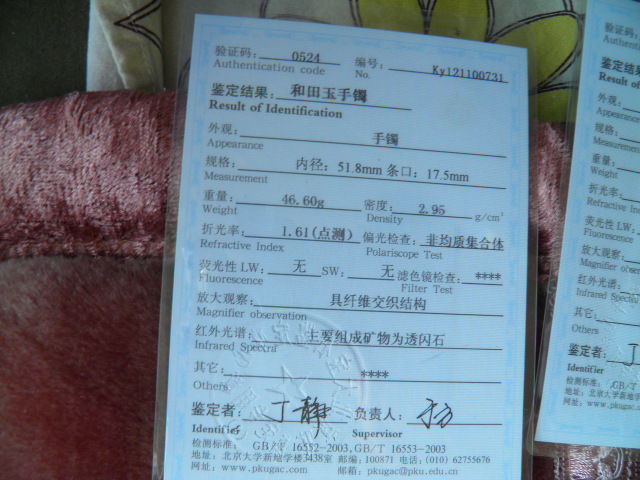 验证码: 0524 编号: Ky121100731
Authentication code No.
鉴定结果: 和田玉手镯
Result of Identification
外观: 手镯
Appearance
规格: 内径: 51.8mm 条口: 17.5mm
Measurement
重量: 46.60g 密度: 2.95 g/cm³
Weight Density
折光率: 1.61(点测) 偏光检查: 非均质集合体
Refractive Index Polariscope Test
荧光性 LW: 无 SW: 无 滤色镜检查: ****
Fluorescence Filter Test
放大观察: 具纤维交织结构
Magnifier observation
红外光谱: 主要组成矿物为透闪石
Infrared Spectra
其它: ****
Others
鉴定者: 丁静 负责人:
Identifier Supervisor
检测标准: GB/T 16552-2003,GB/T 16553-2003
地址: 北京大学新地学楼3438室 邮编: 100871 电话: (010) 62755676
网址: www.pkugac.com 邮箱: pkugac@pku.edu.cn
验证码:
Authent
鉴定结
Result o
外观:
Appearance
规格:
Measuremen
重量:
Weight
折光率:
Refractive
荧光性 L
Fluorescence
放大观
Magnifier
红外光
Infrared Spe
其它:
Others
鉴定者:
Identifier
检测标准:
地址: 北京大学新地
网址: www.pku